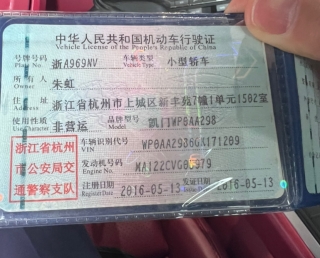 中华人民共和国机动车行驶证
Vehicle License of the People's Republic of China
号牌号码 Plate No. 浙A969NV 车辆类型 Vehicle Type 小型轿车
所有人 Owner 朱虹
住址 Address 浙江省杭州市上城区新丰苑7幢1单元1502室
使用性质 Use Character 非营运 品牌型号 Model 凯门WP0AA298
浙江省杭州市公安局交通警察支队
车辆识别代号 VIN WP0AA2986GK171209
发动机号码 Engine No.
注册日期 Register Date 2016-05-13 发证日期 Issue Date 2016-05-13